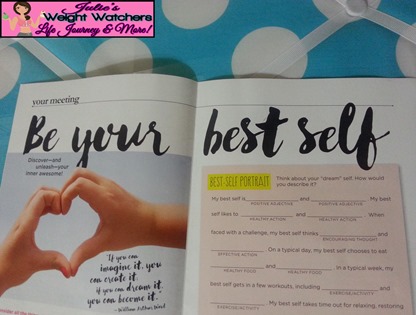 Julie's
Weight Watchers
Life Journey & More!
your meeting
Be your best self
Discover—and
unleash—your
inner awesome!
"If you can
imagine it, you
can create it.
If you can dream it,
you can become it."
—William Arthur Ward
BEST-SELF PORTRAIT
Think about your "dream" self. How would
you describe it?
My best self is and . My best
POSITIVE ADJECTIVE POSITIVE ADJECTIVE
self likes to and . When
HEALTHY ACTION HEALTHY ACTION
faced with a challenge, my best self thinks and
ENCOURAGING THOUGHT
. On a typical day, my best self chooses to eat
EFFECTIVE ACTION
and . In a typical week, my
HEALTHY FOOD HEALTHY FOOD
best self gets in a few workouts, including and
EXERCISE/ACTIVITY
. My best self takes time out for relaxing, restoring
EXERCISE/ACTIVITY